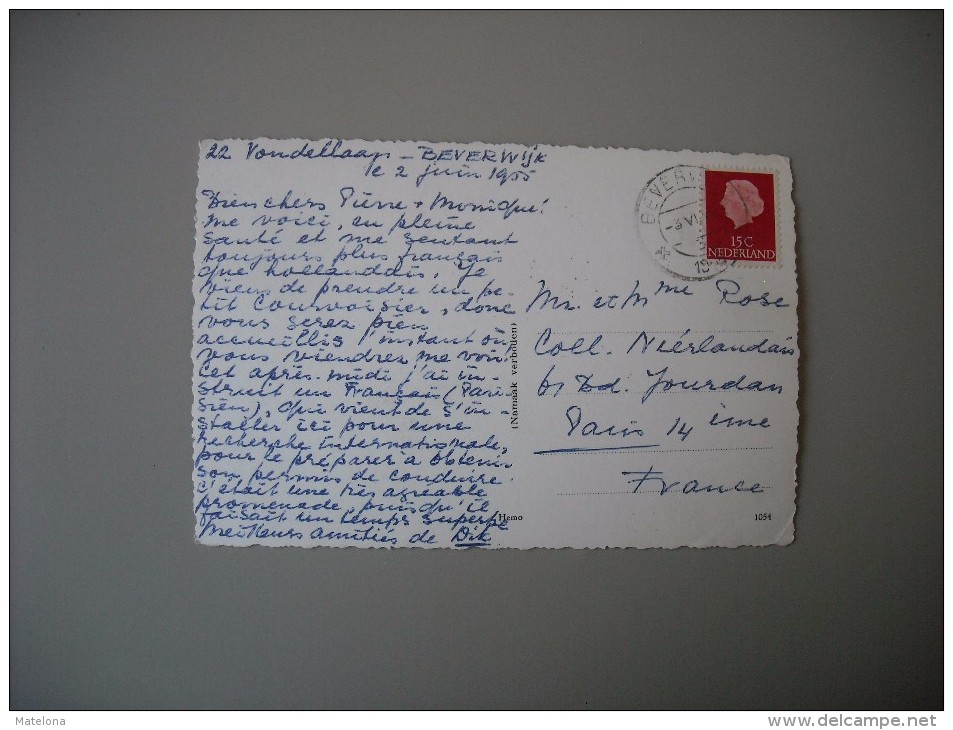 22 Vondellaan - BEVERWIJK
le 2 juin 1955
Bien chers Pierre + Monique!
me voici, en pleine
santé et me sentant
toujours plus français
que hollandais. Je
viens de prendre un pe-
tit Courvoisier, donc
vous serez bien
accueillis l'instant où
vous viendrez me voir!
Cet après-midi j'ai in-
struit un Français (Pari-
sien), qui vient de s'in-
staller ici pour une
recherche internationale,
pour le préparer à obtenir
son permis de conduire.
C'était une très agréable
promenade, puisqu'il
faisait un temps superbe
Meilleurs amitiés de Dik
(Namaak verboden)
Hemo
1054
BEVERW
3 VI
19
15C
NEDERLAND
Mr. et Mme Rose
Coll. Néerlandais
61 Bd. Jourdan
Paris 14ième
France
Matelona
delcampe.net